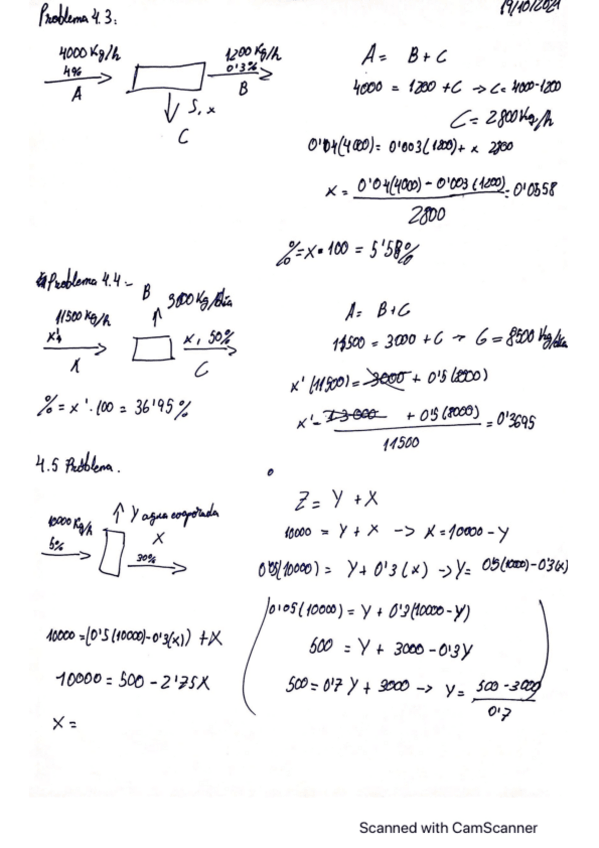 19/10/2021
Problema 4.3:
4000 Kg/h
4%
A
1200 Kg/h
0'3%
B
S, x
C
A = B + C
4000 = 1200 + C → C = 4000-1200
C = 2800 Kg/h
0'04(4000) = 0'003(1200) + x 2800
x = 0'04(4000) - 0'003(1200) = 0'0558
2800
% = x · 100 = 5'58%
Problema 4.4 -
B
3000 Kg/día
11500 Kg/h
x'
X
x, 50%
C
A = B + C
11500 = 3000 + C → C = 8500 Kg/día
x'(11500) = 3000 + 0'5(8500)
+ 0'5(8000) = 0'3695
11500
% = x' · 100 = 36'95%
4.5 Problema.
10000 Kg/h
5%
Y agua evaporada
X
30%
Z = Y + X
10000 = Y + X → X = 10000 - Y
0'05(10000) = Y + 0'3(x) → Y = 0'5(1000) - 0'3(x)
0'05(10000) = Y + 0'3(10000 - Y)
500 = Y + 3000 - 0'3Y
500 = 0'7Y + 3000 → Y = 500 - 3000
0'7
10000 = (0'5(10000) - 0'3(x)) + X
10000 = 500 - 2'75X
X =
Scanned with CamScanner